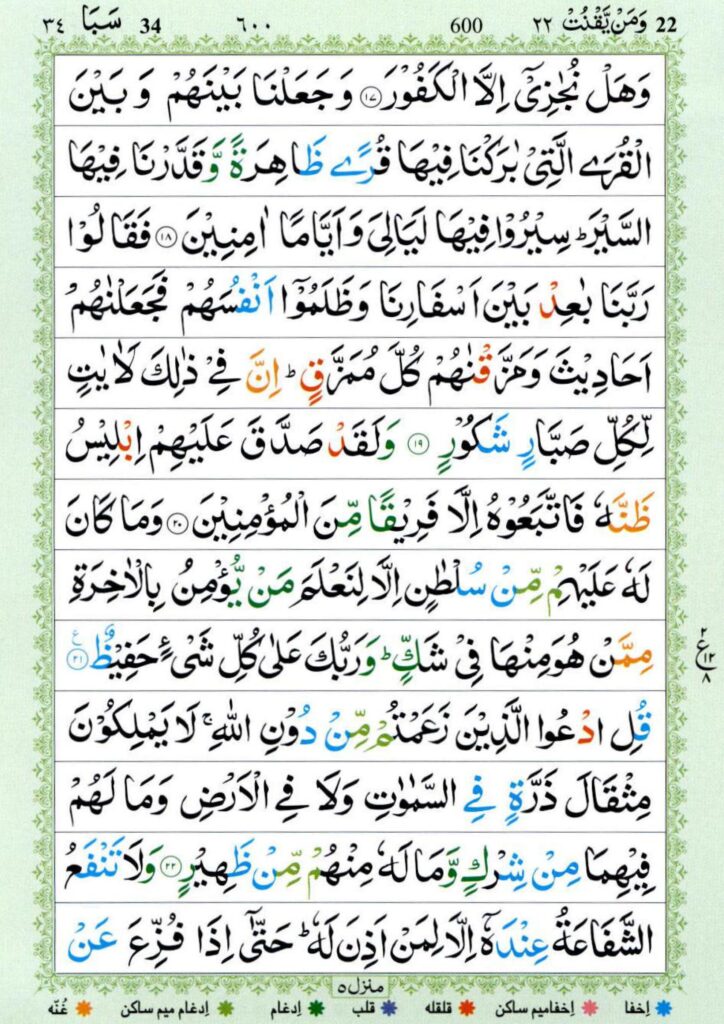 22 وَمَنْ يَّقْنُتْ ٢٢ 600 ٦٠٠ 34 سَبَا ٣٤
وَهَلْ نُجٰزِيْۤ اِلَّا الْكَفُوْرَ ﴿١٧﴾ وَجَعَلْنَا بَيْنَهُمْ وَبَيْنَ
الْقُرَى الَّتِيْ بٰرَكْنَا فِيْهَا قُرًى ظَاهِرَةً وَّقَدَّرْنَا فِيْهَا
السَّيْرَ ؕ سِيْرُوْا فِيْهَا لَيَالِيَ وَاَيَّامًا اٰمِنِيْنَ ﴿١٨﴾ فَقَالُوْا
رَبَّنَا بٰعِدْ بَيْنَ اَسْفَارِنَا وَظَلَمُوْۤا اَنْفُسَهُمْ فَجَعَلْنٰهُمْ
اَحَادِيْثَ وَمَزَّقْنٰهُمْ كُلَّ مُمَزَّقٍ ؕ اِنَّ فِيْ ذٰلِكَ لَاٰيٰتٍ
لِّكُلِّ صَبَّارٍ شَكُوْرٍ ﴿١٩﴾ وَلَقَدْ صَدَّقَ عَلَيْهِمْ اِبْلِيْسُ
ظَنَّهٗ فَاتَّبَعُوْهُ اِلَّا فَرِيْقًا مِّنَ الْمُؤْمِنِيْنَ ﴿٢٠﴾ وَمَا كَانَ
لَهٗ عَلَيْهِمْ مِّنْ سُلْطٰنٍ اِلَّا لِنَعْلَمَ مَنْ يُّؤْمِنُ بِالْاٰخِرَةِ
مِمَّنْ هُوَ مِنْهَا فِيْ شَكٍّ ؕ وَرَبُّكَ عَلٰى كُلِّ شَيْءٍ حَفِيْظٌ ﴿٢١﴾ ع
٢
ع ١٢
٨
قُلِ ادْعُوا الَّذِيْنَ زَعَمْتُمْ مِّنْ دُوْنِ اللّٰهِ ۚ لَا يَمْلِكُوْنَ
مِثْقَالَ ذَرَّةٍ فِي السَّمٰوٰتِ وَلَا فِي الْاَرْضِ وَمَا لَهُمْ
فِيْهِمَا مِنْ شِرْكٍ وَّمَا لَهٗ مِنْهُمْ مِّنْ ظَهِيْرٍ ﴿٢٢﴾ وَلَا تَنْفَعُ
الشَّفَاعَةُ عِنْدَهٗۤ اِلَّا لِمَنْ اَذِنَ لَهٗ ؕ حَتّٰۤى اِذَا فُزِّعَ عَنْ
منزل ٥
اِخفا اِخفامیم ساکن قلقله قلب اِدغام اِدغام میم ساکن غُنّه